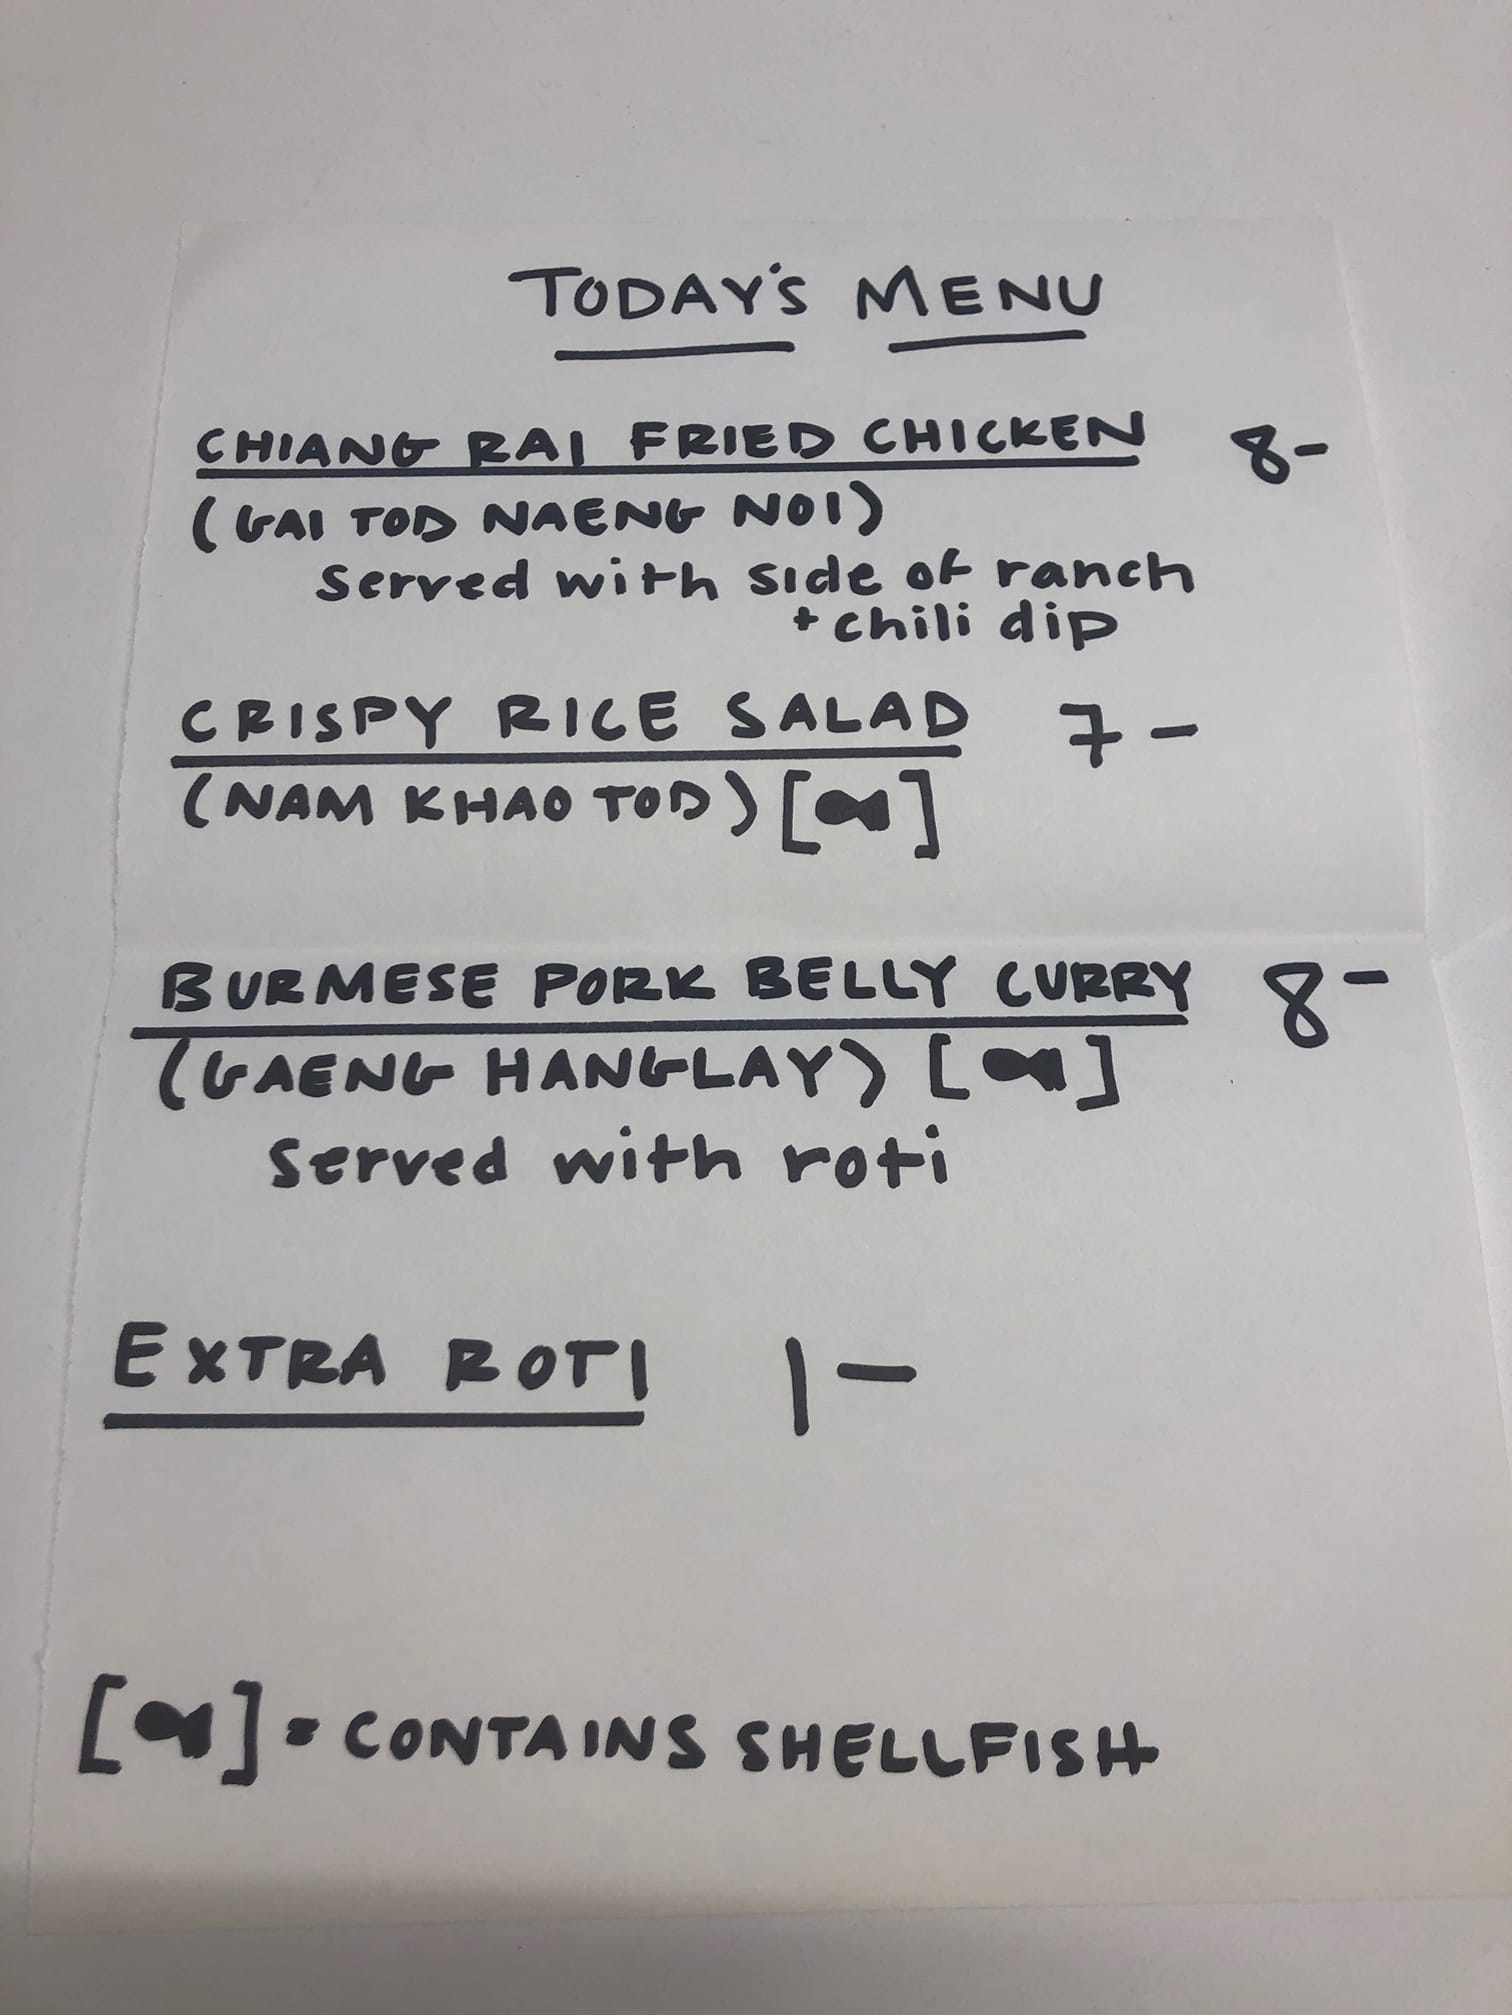 TODAY'S MENU
CHIANG RAI FRIED CHICKEN 8-
(GAI TOD NAENG NOI)
served with side of ranch
+ chili dip
CRISPY RICE SALAD 7-
(NAM KHAO TOD) [ ]
BURMESE PORK BELLY CURRY 8-
(GAENG HANGLAY) [ ]
served with roti
EXTRA ROTI 1-
[ ] = CONTAINS SHELLFISH